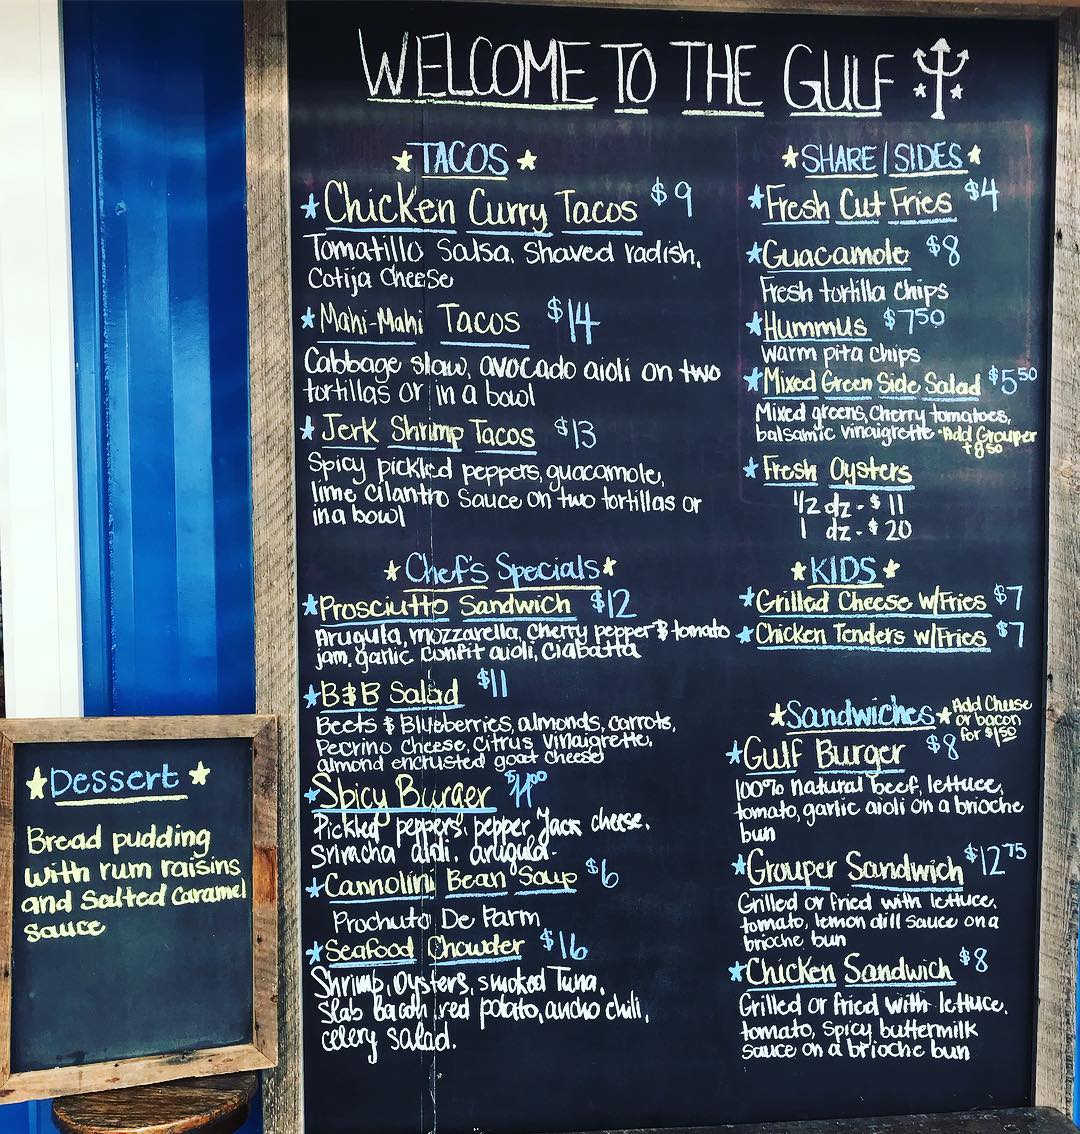 WELCOME TO THE GULF
TACOS
Chicken Curry Tacos $9
Tomatillo Salsa, Shaved radish,
Cotija Cheese
Mahi-Mahi Tacos $14
Cabbage slaw, avocado aioli on two
tortillas or in a bowl
Jerk Shrimp Tacos $13
Spicy pickled peppers, guacamole,
lime cilantro sauce on two tortillas or
in a bowl
Chef's Specials
Prosciutto Sandwich $12
Arugula, mozzarella, cherry pepper & tomato
jam, garlic confit aioli, ciabatta
B&B Salad $11
Beets & Blueberries, almonds, carrots,
Pecrino cheese, citrus vinaigrette,
almond encrusted goat cheese
Spicy Burger
Pickled peppers, pepper Jack cheese,
Sriracha aioli, arugula.
Cannolini Bean Soup $6
Prochuto De Parm
Seafood Chowder $16
Shrimp, Oysters, smoked Tuna,
Slab bacon, red potato, ancho chili,
celery salad.
SHARE/SIDES
Fresh Cut Fries $4
Guacamole $8
Fresh tortilla chips
Hummus $7.50
warm pita chips
Mixed Green Side Salad $5.50
Mixed greens, cherry tomatoes,
balsamic vinaigrette • Add Grouper
+8.50
Fresh Oysters
1/2 dz - $11
1 dz - $20
KIDS
Grilled Cheese w/Fries $7
Chicken Tenders w/Fries $7
Sandwiches Add Cheese
or bacon
for $1.50
Gulf Burger $8
100% natural beef, lettuce,
tomato, garlic aioli on a brioche
bun
Grouper Sandwich $12.75
Grilled or fried with lettuce,
tomato, lemon dill sauce on a
brioche bun
Chicken Sandwich $8
Grilled or fried with lettuce,
tomato, spicy buttermilk
sauce on a brioche bun
Dessert
Bread pudding
with rum raisins
and salted caramel
sauce